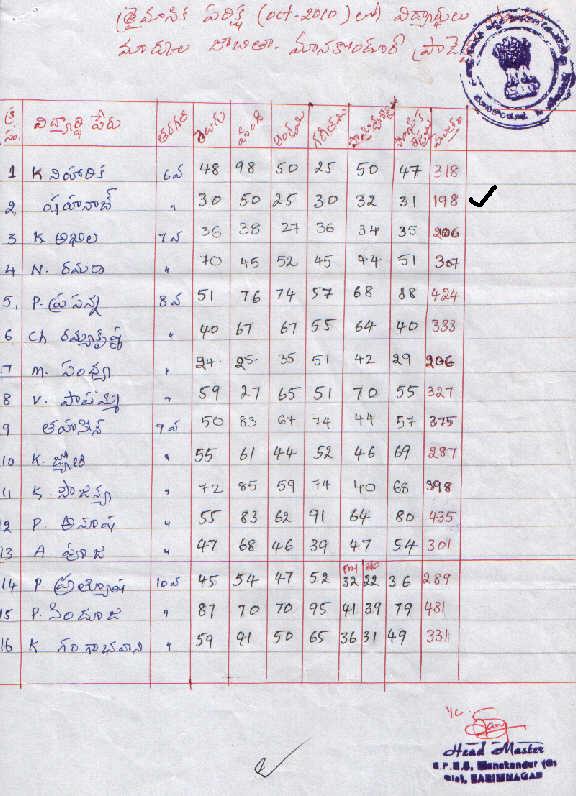 త్రైమాసిక పరీక్ష (oct-2010) లో విద్యార్థులు
మార్కుల జాబితా. మానకొండూర్
క్ర సం. విద్యార్థి పేరు తరగతి తెలుగు హిందీ ఇంగ్లీషు గణితము సాంఘిక
1 K నిహారిక 6వ 48 98 50 25 50 47 318
2 షహనాజ్ " 30 50 25 30 32 31 198
3 K అఖిల 7వ 36 38 27 36 34 35 206
4 N. రమాదే " 70 45 52 45 44 51 307
5. P. ప్రసన్న 8వ 51 76 74 57 68 88 424
6 Ch రమ్యకృష్ణ " 40 67 67 55 64 40 333
7 M. సంధ్య " 24 25 35 51 42 29 206
8 V. పాపమ్మ " 59 27 65 51 70 55 327
9 తహసీన్ 9వ 50 83 67 74 44 57 375
10 K. జ్యోతి " 55 61 44 52 46 69 287
11 K. సౌజన్య " 72 85 59 74 40 68 398
12 P. అనూష " 55 83 62 91 64 80 435
13 A పూజ " 47 68 46 39 47 54 301
PM NS
14 P ప్రత్యూష 10వ 45 54 47 52 32 22 36 289
15 P. సింధూజ " 87 70 70 95 41 39 79 481
16 K గంగాభవాని " 59 91 50 65 36 31 49 331
I/c
Head Master
U.P.S.S. Manakondur (M)
Dist. KARIMNAGAR